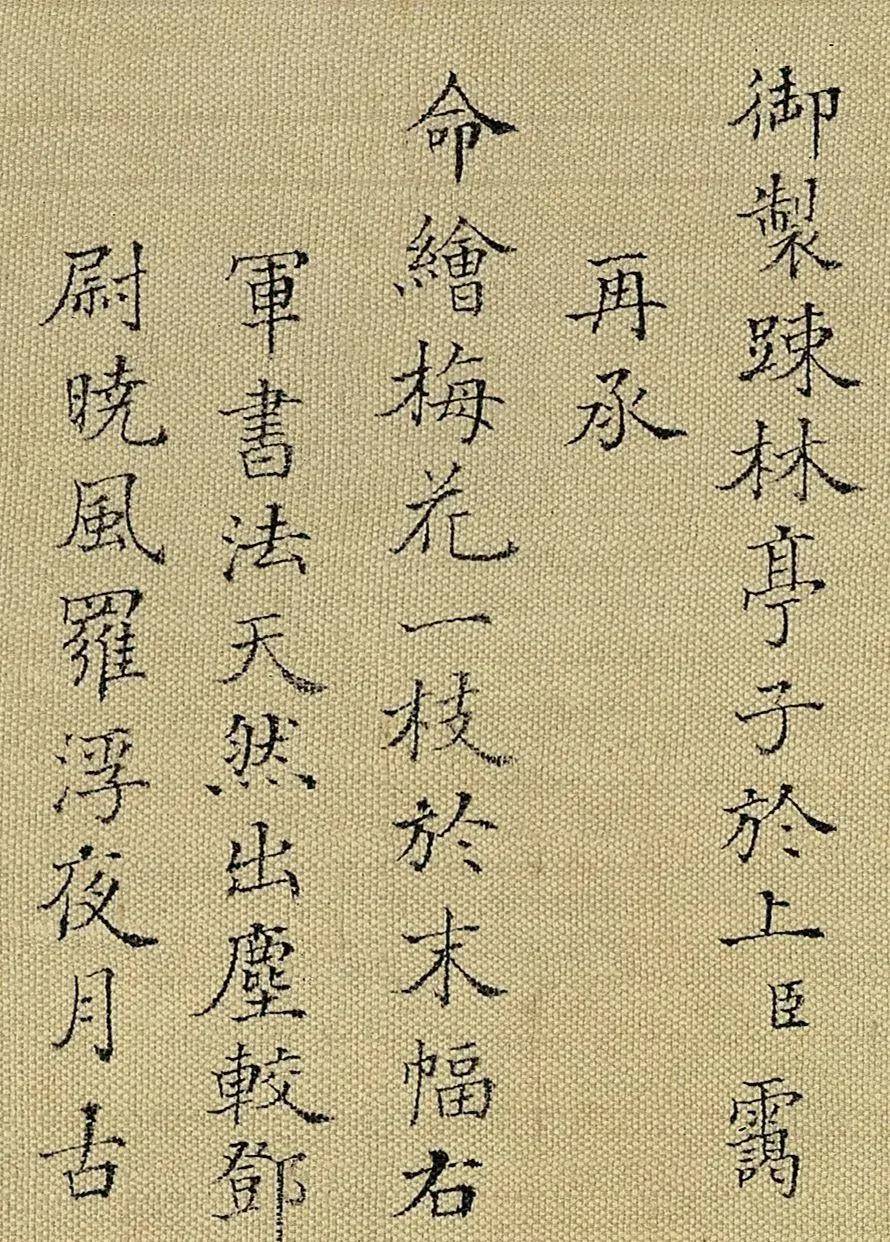 御製踈林亭子於上臣靄
再承
命繪梅花一枝於末幅右
軍書法天然出塵較鄧
尉曉風羅浮夜月古